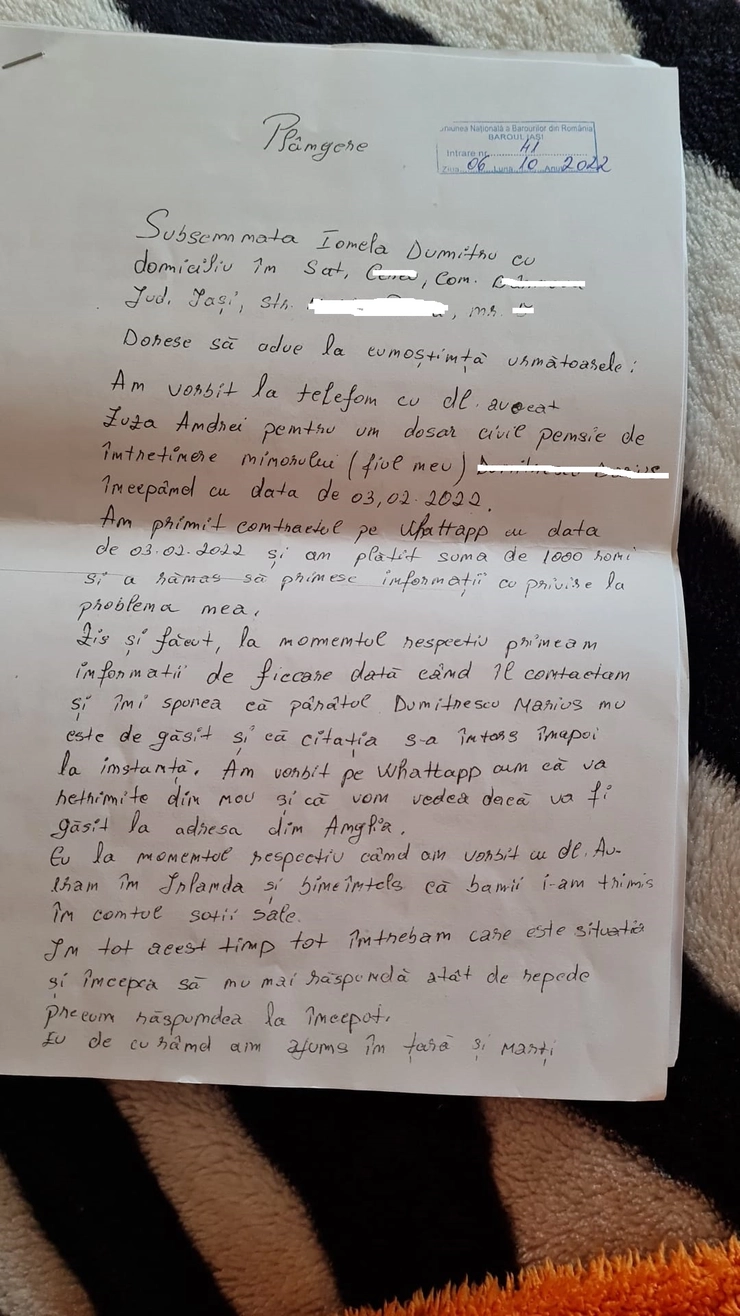 Plângere
Uniunea Națională a Barourilor din România
BAROUL IAȘI
Intrare nr. 41
Ziua 06 Luna 10 Anul 2022
Subsemnata Ionela Dumitru cu
domiciliu în Sat, , Com.
Jud. Iași, Str. , nr.
Doresc să aduc la cunoștință următoarele:
Am vorbit la telefon cu dl. avocat
Zuza Andrei pentru un dosar civil pensie de
întreținere minorului (fiul meu)
începând cu data de 03,02.2022.
Am primit contractul pe Whattapp cu data
de 03.02.2022 și am plătit suma de 1000 roni
și a rămas să primesc informații cu privire la
problema mea.
Zis și făcut, la momentul respectiv primeam
informatii de fiecare dată când îl contactam
și îmi spunea că pârâtul Dumitrescu Marius nu
este de găsit și că citația s-a întors înapoi
la instanță. Am vorbit pe Whattapp cum că va
retrimite din nou și că vom vedea dacă va fi
găsit la adresa din Anglia.
Eu la momentul respectiv când am vorbit cu dl. Av-
eram în Irlanda și bineînteles că banii i-am trimis
în contul sotii sale.
In tot acest timp tot întrebam care este situatia
și începea să nu mai răspundă atât de repede
precum răspundea la început.
Eu de curând am ajuns în țară și Marți